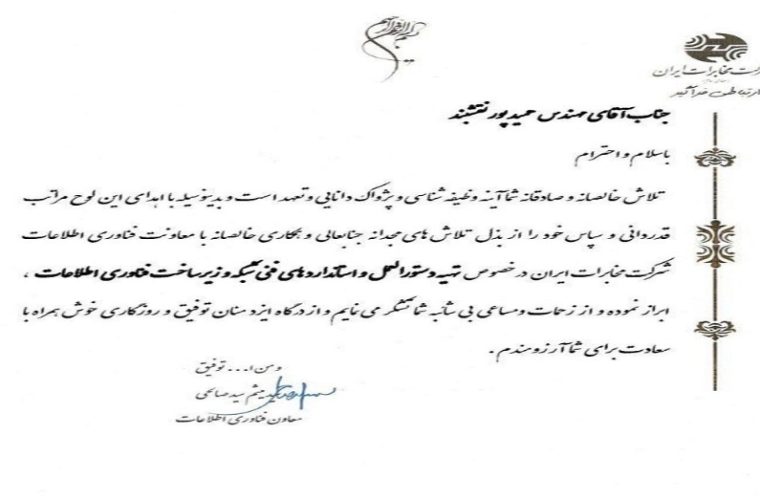 بسم الله الرحمن الرحیم
شرکت مخابرات ایران
جناب آقای مهندس حمید پور نقشبند
باسلام و احترام
تلاش خالصانه و صادقانه شما آینه وظیفه شناسی و پژواک دانایی و تعهد است و بدینوسیله با اهدای این لوح مراتب
قدردانی و سپاس خود را از بذل تلاش های مجدانه جنابعالی و همکاری خالصانه با معاونت فناوری اطلاعات
شرکت مخابرات ایران در خصوص تهیه دستورالعمل و استانداردهای فنی شبکه و زیرساخت فناوری اطلاعات ،
ابراز نموده و از زحمات و مساعی بی شائبه شما تشکر می نمایم و از درگاه ایزد منان توفیق و روزگاری خوش همراه با
سعادت برای شما آرزومندم .
و من ا... توفیق
میثم سید صالحی
معاون فناوری اطلاعات